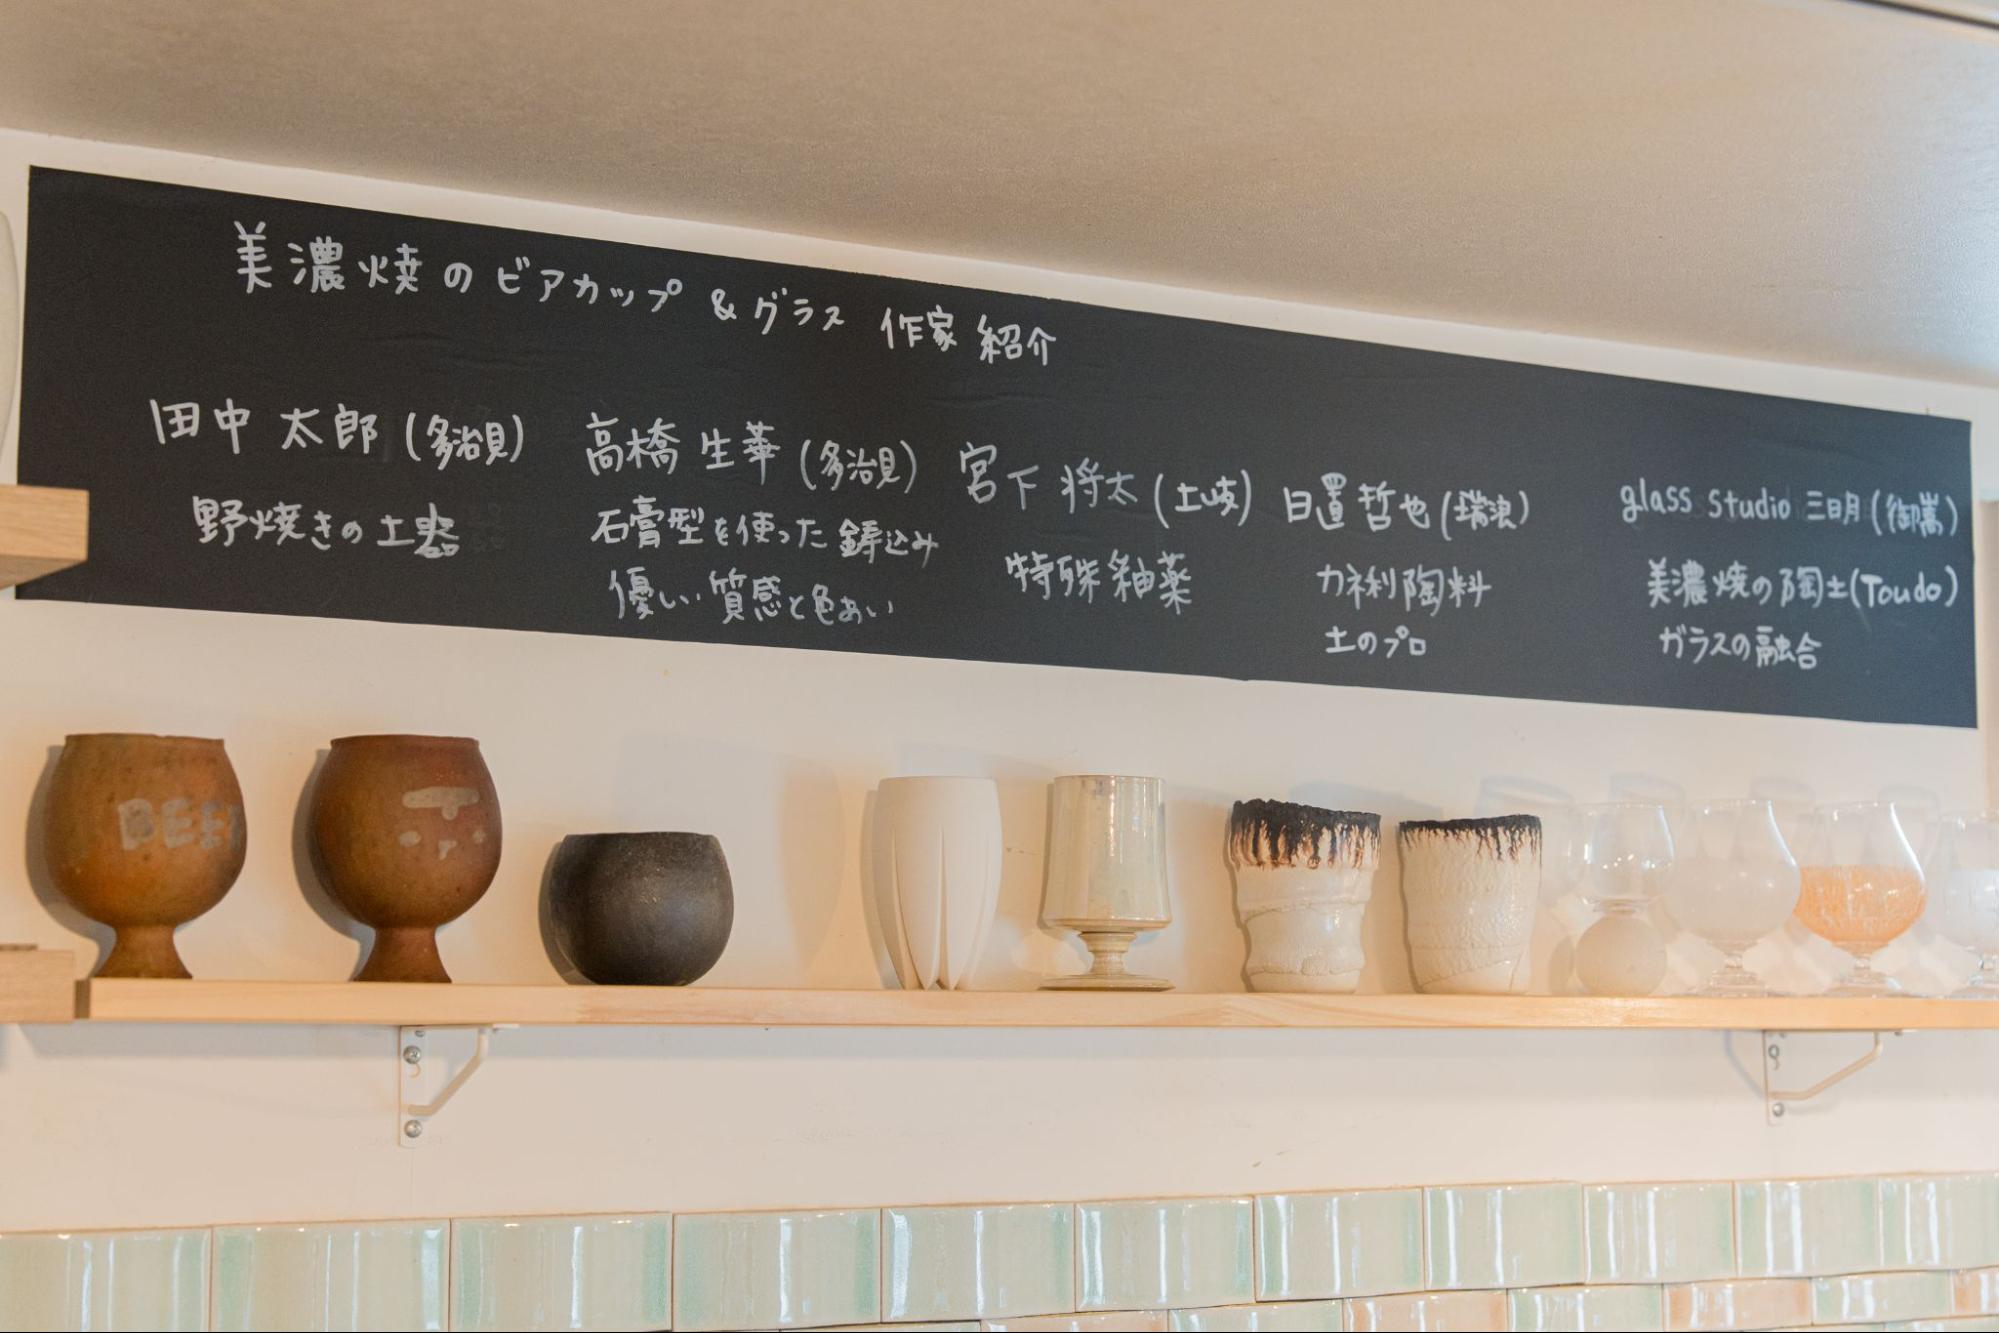 美濃焼のビアカップ & グラス 作家 紹介
田中 太郎 (多治見)
野焼きの土器
高橋 生華 (多治見)
石膏型を使った 鋳込み
優しい質感と色あい
宮下 将太 (土岐)
特殊釉薬
日置 哲也 (瑞浪)
カネ利陶料
土のプロ
glass studio 三日月 (御嵩)
美濃焼の陶土(Toudo)
ガラスの融合
BEER